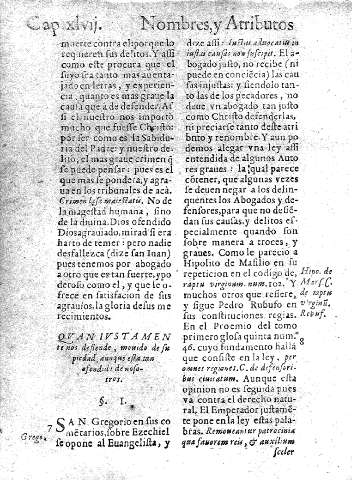 Cap. xlvij. Nombres, y Atributos
muerte contra el por que lo re
quieren sus delitos. Y assi
como este procura que el
suyo sea tanto mas auenta-
jado en letras, y experien-
cia, quanto es mas graue la
causa que a de defender. As
si el nuestro nos importò
mucho que fuesse Christo
por ser como es la Sabidu-
ria del Padre: y nuestro de-
lito, el mas graue crimen q̃
se puede pensar: pues es el
que mas se pondera, y agra-
ua en los tribunales de acà.
Crimen læsæ maiestatis. No de
la magestad humana, sino
de la diuina. Dios ofendido
Dios agrauiado. mirad si era
harto de temer: pero nadie
desfallezca (dize san Iuan)
pues tenemos por abogado
a otro que es tan fuerte, y po
deroso como el, y que le o-
frece en satisfacion de sus
agrauios, la gloria de sus me
recimientos.
QVAN IVSTAMEN-
te nos defiende, mouido de su
piedad, aunque esta tan
ofendido de noso-
tros.
§. I.
7 SAN Gregorio en sus co
mẽtarios, sobre Ezechiel
se opone al Euangelista, y
Grego.
dize assi: Iustus aduocatus in
iustas causas non suscipit. El a-
bogado justo, no recibe (ni
puede en conciẽcia) las cau
sas injustas: y siendolo tan-
to las de los pecadores, no
deue vn abogado tan justo
como Christo defenderlas,
ni preciarse tanto deste atri
buto, y renombre. Y aun po
demos alegar vna ley assi
entendida de algunos Auto
res graues: la qual parece
obtener, que algunas vezes
se deuen negar a los delin-
quentes los Abogados y De-
fensores, para que no defiẽ-
dan sus causas, y delitos es-
pecialmente quando son
sobre manera atroces, y
graues. Como le parecio a
Hipolito de Masilio en su
repeticion en el codigo, de
raptu virginum num. 102. Y
muchos otros que refiere,
y sigue Pedro Rubufo en
sus constituciones regias.
En el Proemio del tomo
primero glosa quinta num.
46. cuyo fundamento halla
que consiste en la ley, per
omnes regiones. C. de defensori-
bus ciuitatum. Aunque esta
opinion no es seguida pues
va contra el derecho natu-
ral, El Emperador justamẽ-
te pone en la ley estas pala-
bras. Remoueantur patrocinia
quæ fauorem reis, & auxilium
sceler
Hipo. de
Mars. C.
de raptu
virginũ.
Rebuf.
8